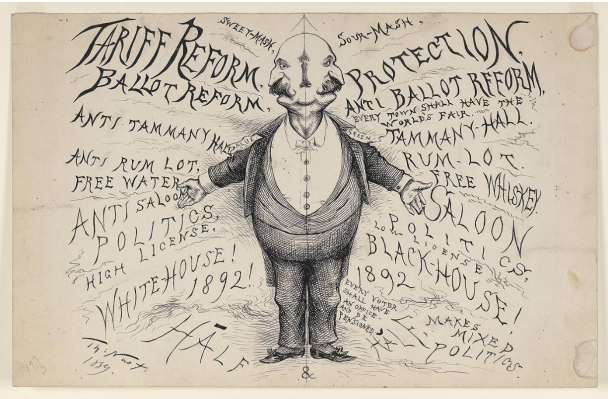 SWEET-MASH,
TARIFF REFORM,
BALLOT REFORM,
ANTI TAMMANY HALL
ANTI RUM LOT,
FREE WATER
ANTI SALOON
POLITICS,
HIGH LICENSE.
WHITEHOUSE!
1892!
HALF
Th: Nast
1889.
&
SOUR-MASH,
PROTECTION,
ANTI BALLOT REFORM,
EVERY TOWN SHALL HAVE THE
WORLD'S FAIR.
TAMMANY-HALL.
RUM-LOT.
FREE WHISKEY.
SALOON
POLITICS,
LOW LICENSE
BLACK-HOUSE!
1892
EVERY VOTER
SHALL HAVE
AN OFFICE
AND BE
PENSIONED,
HALF
MAKES
MIXED
POLITICS.